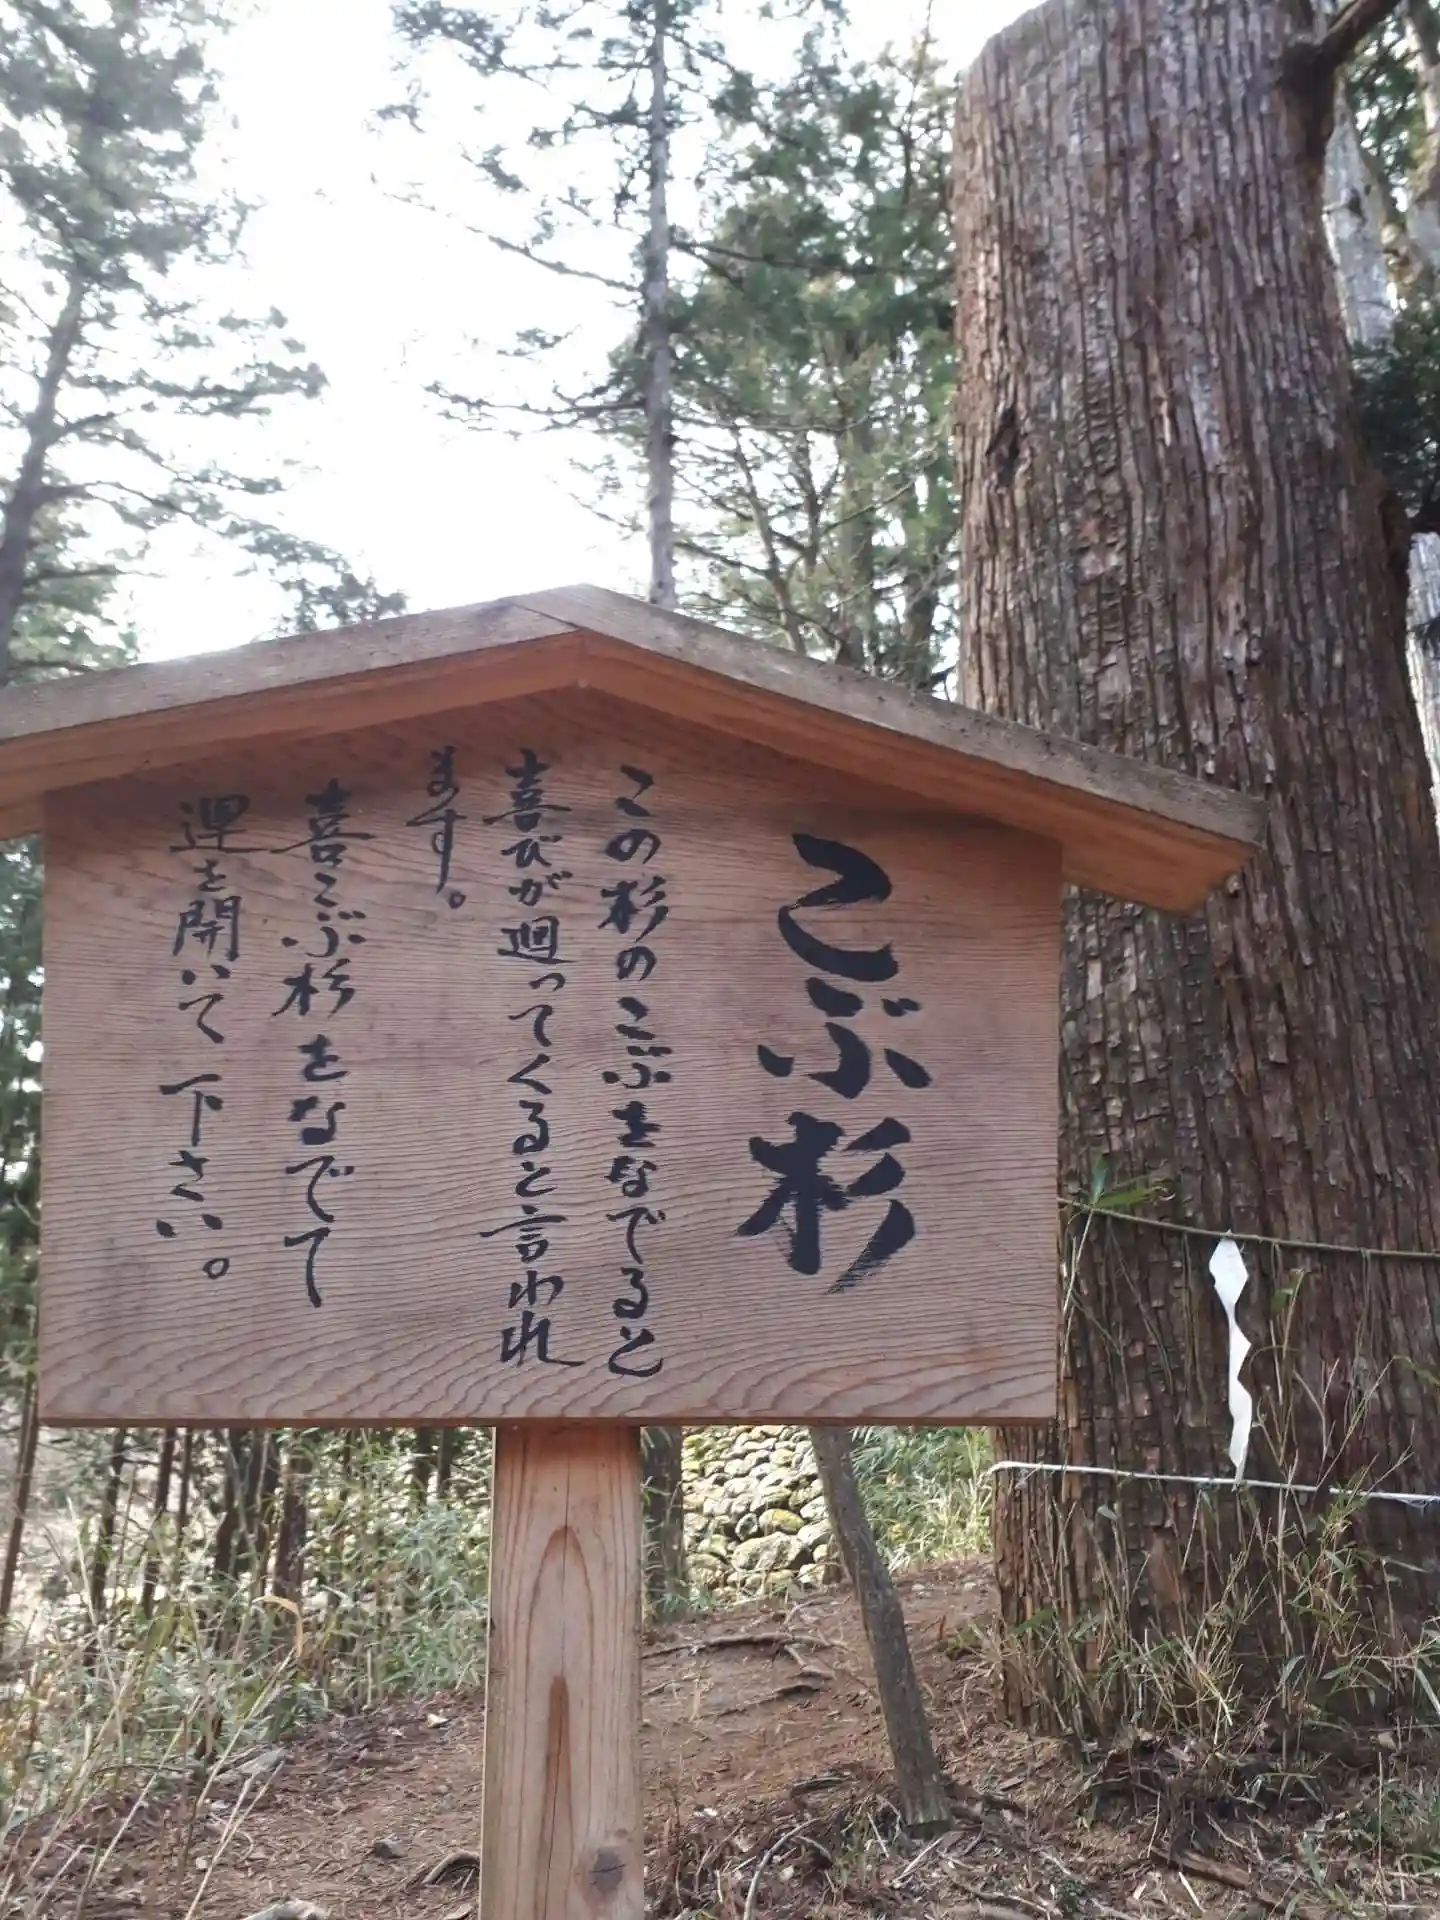 こぶ杉
この杉のこぶをなでると
喜びが廻ってくると言われ
ます。
喜こぶ杉をなでて
運を開いて下さい。